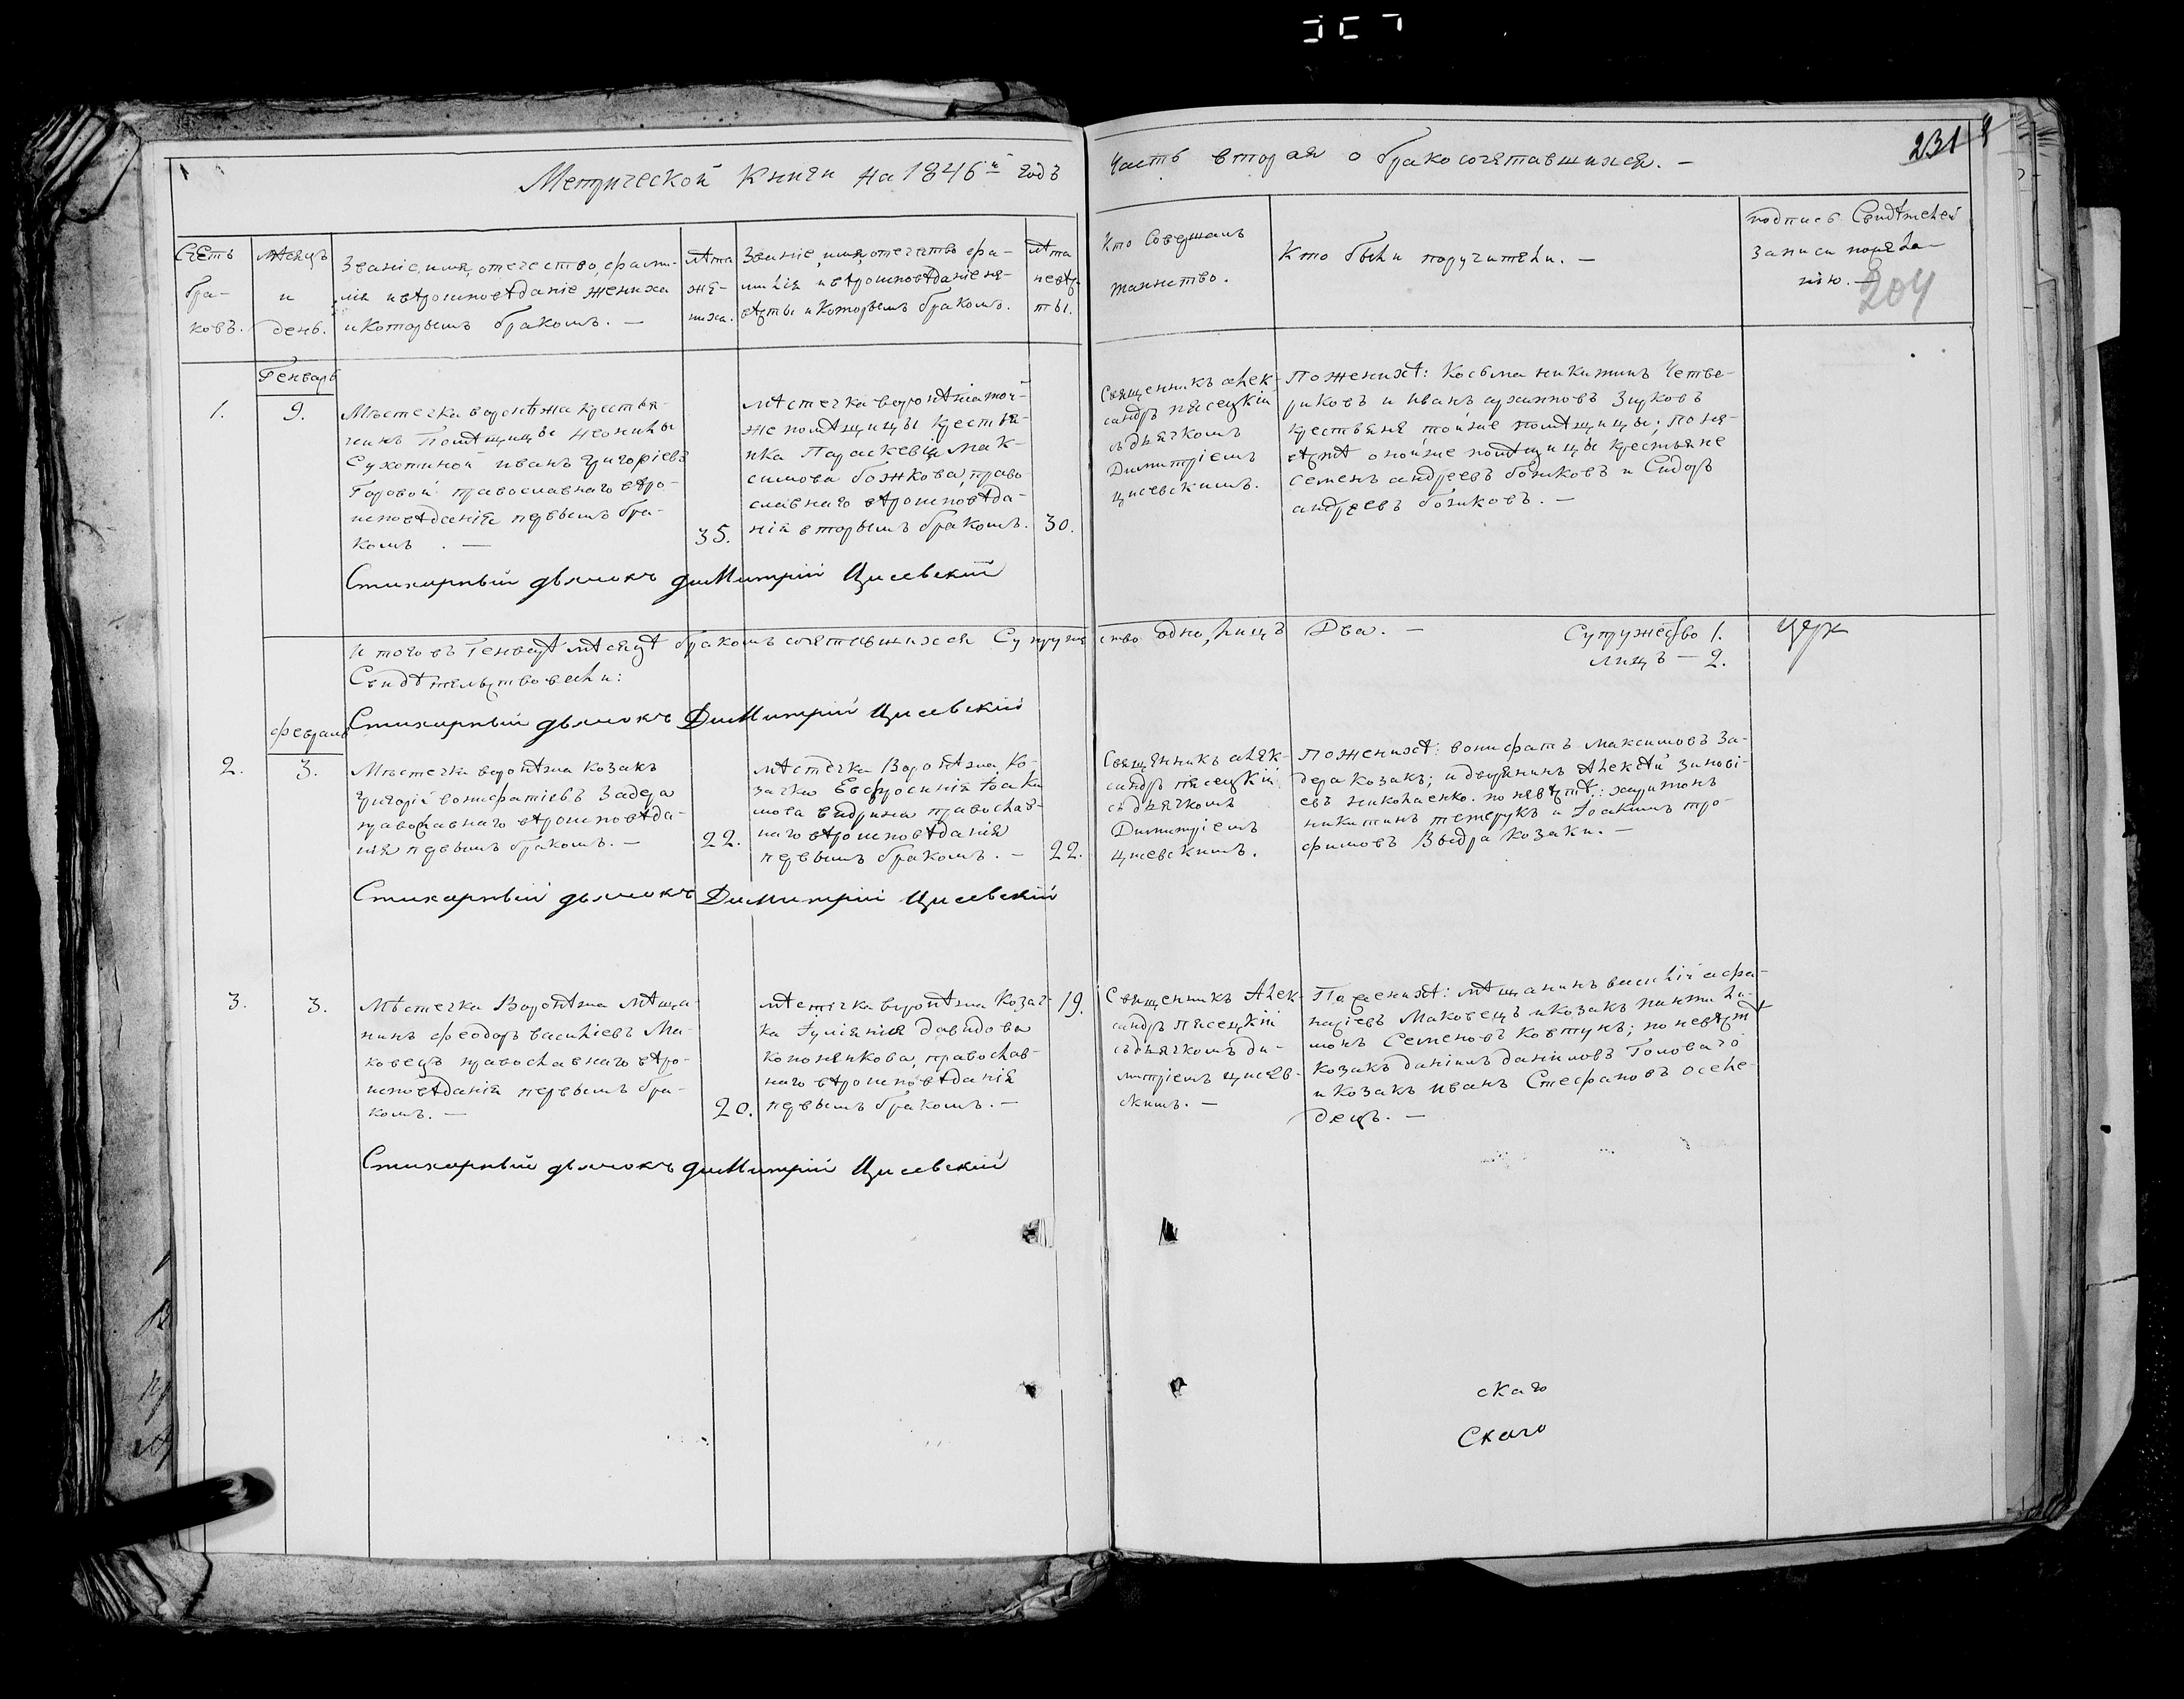 Метрической Книги на 1846й годъ
Часть вторая о бракосочетавшихся. —
231
204
Счетъ бра-
ковъ.
Мѣсяцъ
и
день.
Званіе, имя, отечество, фами-
лія и вѣроисповѣданіе жениха
и которымъ бракомъ. —
Лѣта
же-
ниха.
Званіе, имя, отечество фа-
милія и вѣроисповѣданіе не-
вѣсты и которымъ бракомъ.
Лѣта
невѣс
ты.
Кто Совершалъ
таинство.
Кто были поручители. —
подпись Свидѣтелей
записи по жела-
нію. —
Генварь
1.
9.
Мѣстечка воронѣжа крестья-
нинъ Помѣщицы Леонилы
Сухотиной иванъ григоріевъ
Горовой православнаго вѣро-
исповѣданія первымъ бра-
комъ. —
35.
мѣстечка воронѣжа той-
же помѣщицы крестья-
нка Параскевія мак-
симова божкова, право
славнаго вѣроисповѣда-
нія вторымъ бракомъ.
30.
Священникъ алек-
сандръ пясецкій
съ дьячкомъ
Димитріемъ
цисевскимъ.
По женихѣ: Косьма никитинъ Четве-
риковъ и иванъ архиповъ Зуковъ
крестьяне тойже помѣщицы; по не-
вѣстѣ онойже помѣщицы крестьяне
семенъ андреевъ божковъ и Сидоръ
андреевъ божковъ. —
Стихарный дьячокъ Димитрій Цисевскій
И того въ Генварѣ мѣсяцѣ бракомъ сочетавшихся Супруже ство одно, лицъ Два. —
Супружество 1.
лицъ — 2.
церк
Свидѣтельствовали:
Стихарный дьячокъ Димитрій Цисевскій
февраль
2.
3.
Мѣстечка воронѣжа козакъ
григорій вонифатіевъ Задера
православнаго вѣроисповѣда-
нія первымъ бракомъ. —
22.
мѣстечка Воронѣжа, Ко-
зачка Евфросинія Іоаки
мова выдрина православ-
наго вѣроисповѣданія
первымъ бракомъ. —
22.
Священникъ алек-
сандръ пясецкій
съ дьячкомъ
Димитріемъ
цисевскимъ.
По женихѣ: вонифатъ максимовъ За-
дера козакъ; и дворянинъ Алексѣй зинові-
евъ николаенко. по невѣстѣ: харитонъ
никитинъ тетерукъ и Іоакимъ тро-
фимовъ Выдра козаки. —
Стихарный дьячокъ Димитрій Цисевскій
3.
3.
Мѣстечка Воронѣжа мѣща-
нинъ феодоръ василіевъ Ма-
ковецъ православнаго вѣро-
исповѣданія первымъ бра-
комъ. —
20.
мѣстечка воронѣжа Козач-
ка Іуліянія давидова
кононенкова, православ-
наго вѣроисповѣданія
первымъ бракомъ. —
19.
Священникъ Алек-
сандръ пясецкій
съ дьячкомъ ди-
митріемъ цисев-
скимъ. —
По женихѣ: мѣщанинъ василій афа-
насіевъ Маковецъ и козакъ пантили-
монъ Семеновъ Ковтунъ; по невѣстѣ
козакъ даніилъ даниловъ Головачо
и козакъ иванъ Стефановъ оселе-
децъ. —
Стихарный дьячокъ Димитрій Цисевскій
скаго
Скаго